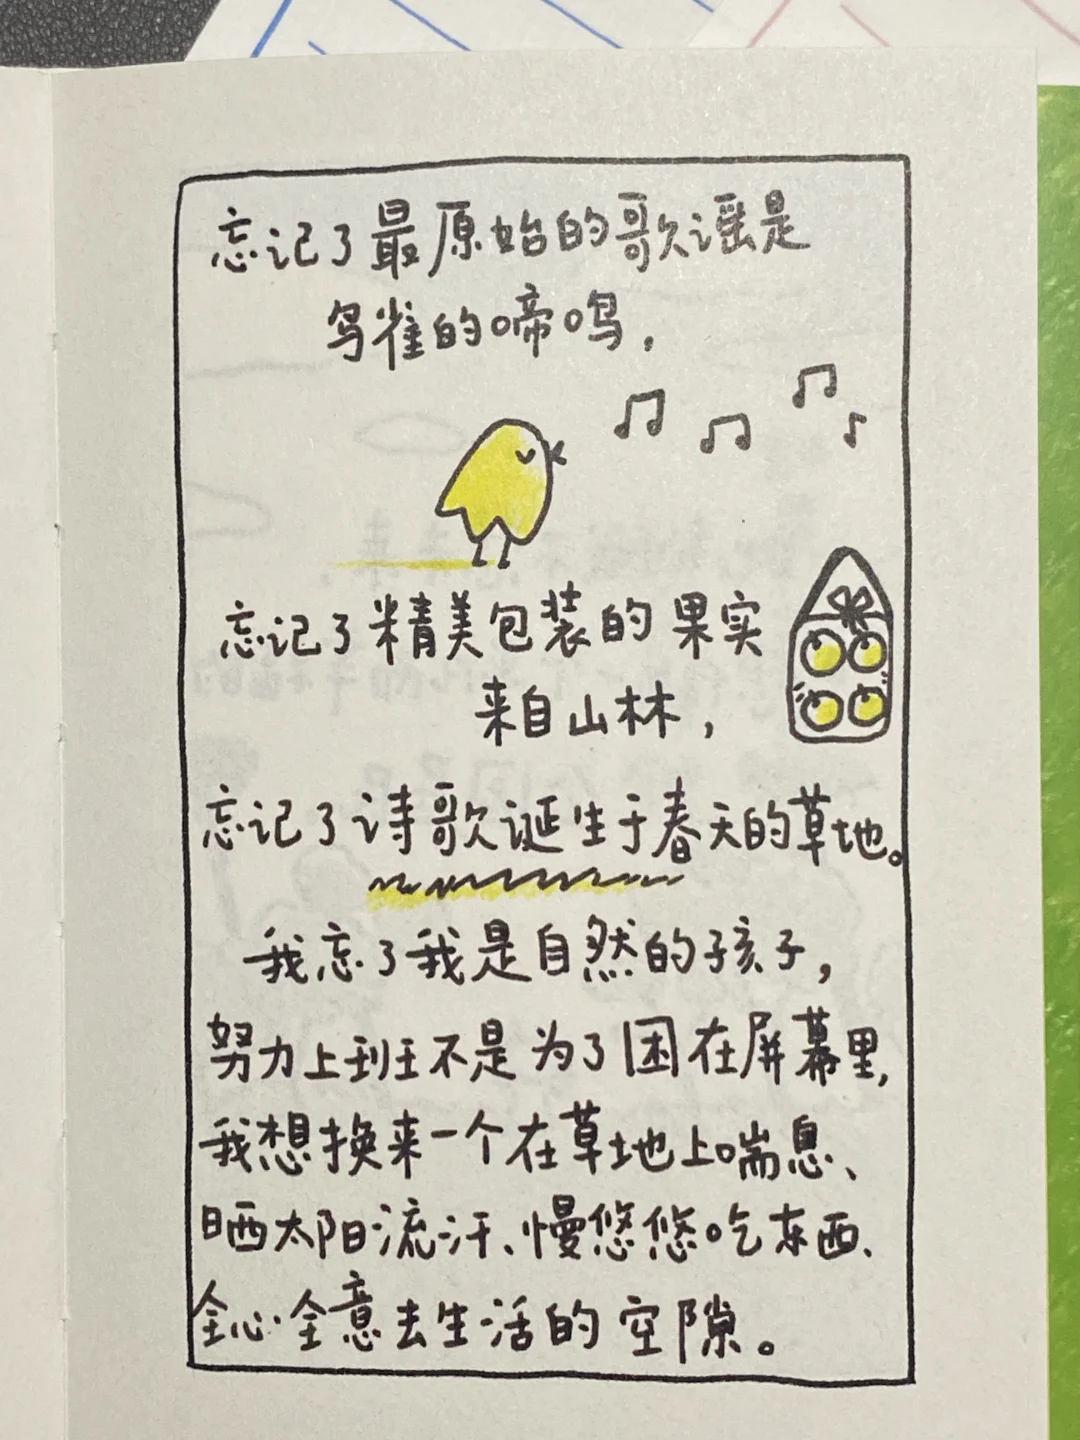 忘记了最原始的歌谣是
鸟雀的啼鸣，
忘记了精美包装的果实
来自山林，
忘记了诗歌诞生于春天的草地。
我忘了我是自然的孩子，
努力上班不是为了困在屏幕里，
我想换来一个在草地上喘息、
晒太阳流汗、慢悠悠吃东西、
全心全意去生活的空隙。